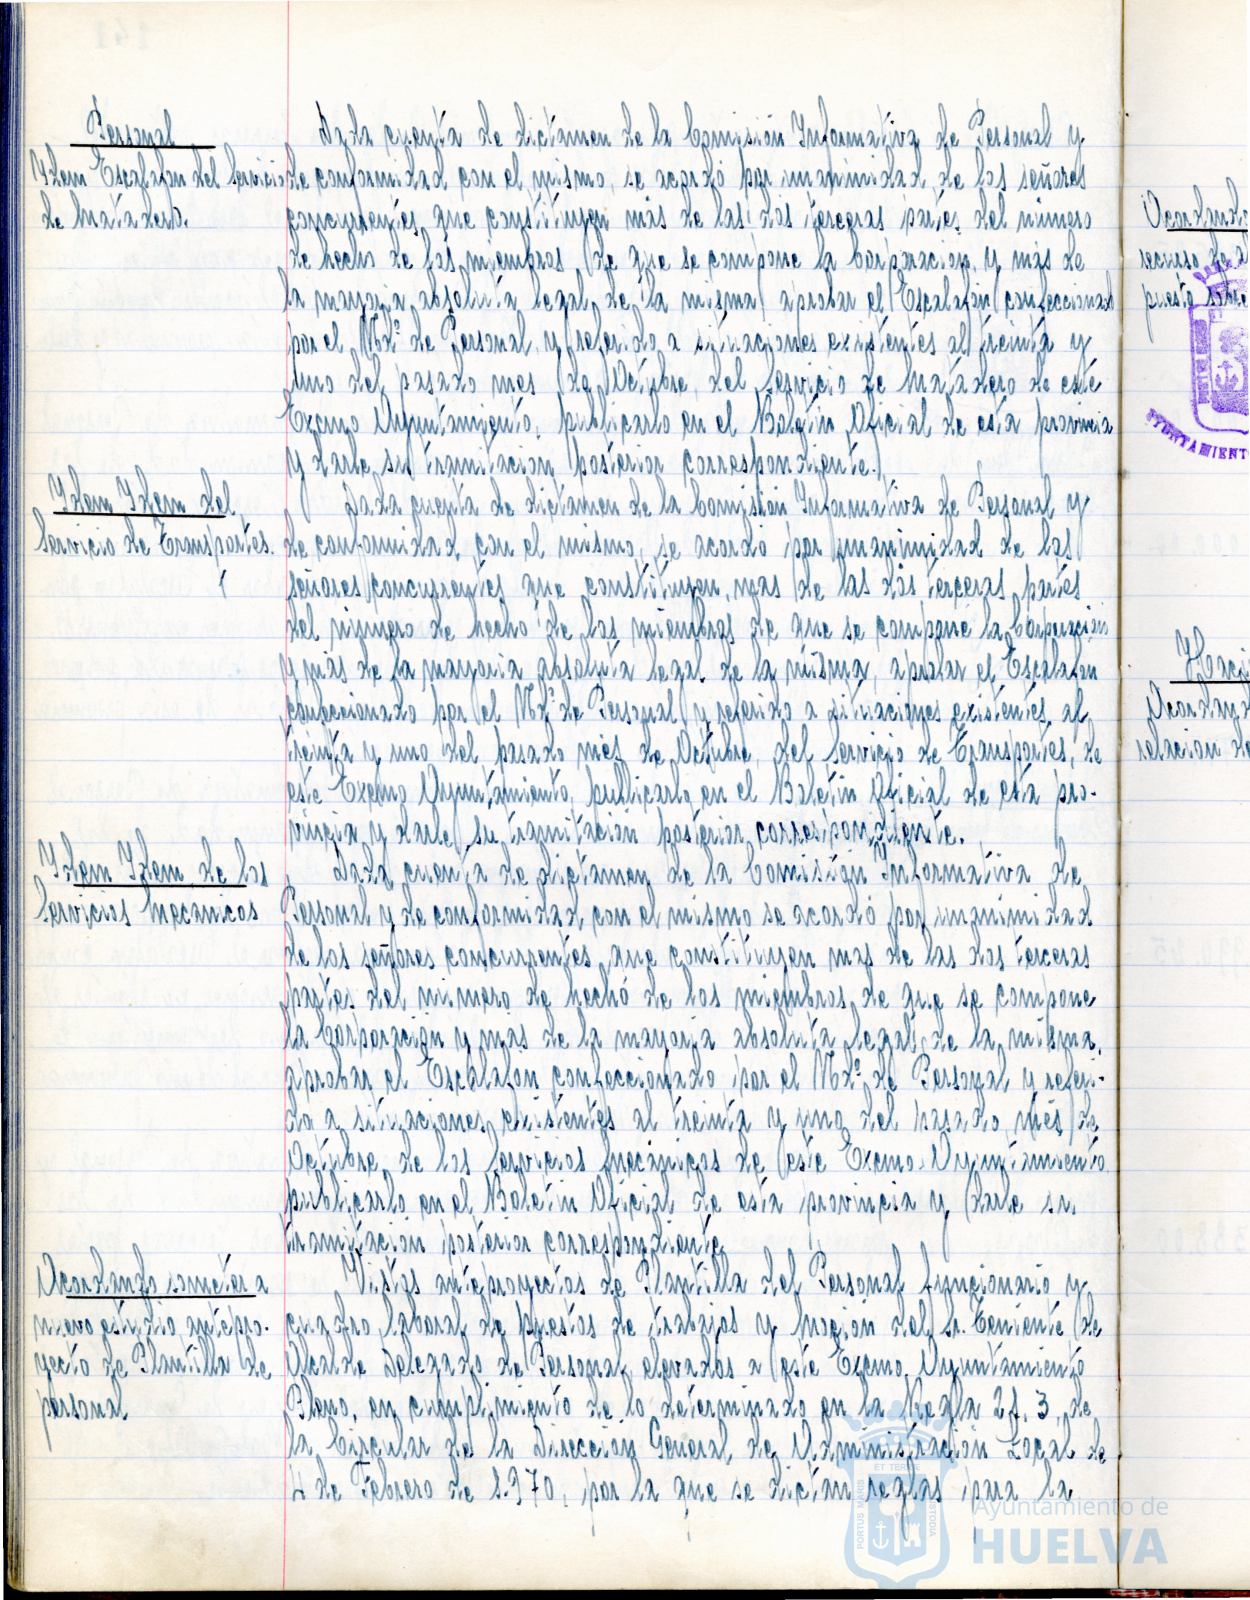 Personal
Idem Escalafon del Servicio
de Matadero.
Dada cuenta de dictamen de la Comisión Informativa de Personal y
de conformidad con el mismo, se acordó por unanimidad de los señores
concurrentes que constituyen más de las dos terceras partes del número
de hecho de los miembros de que se compone la Corporación, y más de
la mayoría absoluta legal de la misma, aprobar el Escalafón confeccionado
por el Ndº de Personal y referido a situaciones existentes al treinta y
uno del pasado mes de Octubre, del Servicio de Matadero de este
Excmo Ayuntamiento, publicarlo en el Boletín Oficial de esta provincia
y darle su tramitacion posterior correspondiente.
Idem Idem del
Servicio de Transportes.
Dada cuenta de dictamen de la Comisión Informativa de Personal y
de conformidad con el mismo, se acordó por unanimidad de los
señores concurrentes que constituyen mas de las dos terceras partes
del número de hecho de los miembros de que se compone la Corporación
y más de la mayoria absoluta legal de la misma, aprobar el Escalafon
confeccionado por el Ndº de Personal y referido a situaciones existentes al
treinta y uno del pasado mes de Octubre, del Servicio de Transportes, de
este Excmo Ayuntamiento, publicarlo en el Boletin Oficial de esta pro-
vincia y darle su tramitación posterior correspondiente.
Idem Idem de los
Servicios Mecanicos
Dada cuenta de dictamen de la Comisión Informativa de
Personal y de conformidad con el mismo se acordó por unanimidad
de los señores concurrentes que constituyen mas de las dos terceras
partes del número de hecho de los miembros de que se compone
la Corporación y mas de la mayoria absoluta legal de la misma,
aprobar el Escalafon confeccionado por el Ndº de Personal y referi-
do a situaciones existentes al treinta y uno del pasado mes de
Octubre, de los Servicios Mecánicos de este Excmo. Ayuntamiento
publicarlo en el Boletin Oficial de esta provincia y darle su
tramitacion posterior correspondiente.
Acordando someter a
nuevo estudio antepro-
yecto de Plantilla de
personal
Vistos anteproyectos de Plantilla del Personal funcionario y
cuadro laboral de puestos de trabajos y moción del Sr. Teniente de
Alcalde Delegado de Personal, elevados a este Excmo. Ayuntamiento
Pleno, en cumplimiento de lo determinado en la Regla 2ª. 3, de
la Circular de la Dirección General de Administración Local de
4 de Febrero de 1.970, por la que se dictan reglas para la
Acordando
recurso de
puesto sobre
AYUNTAMIENTO
Acordando
relacion de
Ayuntamiento de
HUELVA
PORTUS MARIS
ET TERRE
CUSTODIA